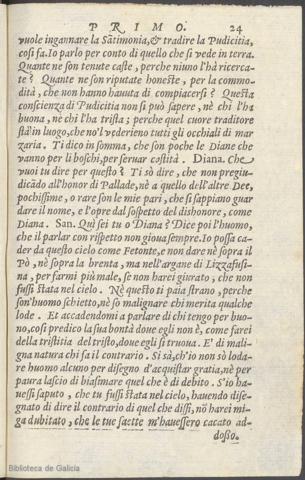 PRIMO. 24
vuole ingannare la Sãtimonia, & tradire la Pudicitia,
cosi fa. Io parlo per conto di quello che si vede in terra.
Quante ne son tenute caste, perche niuno l'hà ricerca-
te? Quante ne son riputate honeste, per la commo-
dità, che non hanno hauuta di compiacersi? Questa
conscienza di Pudicitia non si può sapere, nè chi l'hà
buona, nè chi l'hà trista; perche quel cuore traditore
stà in luogo, che no'l vederieno tutti gli occhiali di mar
zaria. Ti dico in somma, che son poche le Diane che
vanno per li boschi, per seruar castità. Diana. Che
vuoi tu dire per questo? Ti sò dire, che non pregiu-
dicãdo all'honor di Pallade, nè a quello dell'altre Dee,
pochissime, o rare son le mie pari, che si sappiano guar
dare il nome, e l'opre dal sospetto del dishonore, come
Diana. San. Quì sei tu o Diana? Dice poi l'huomo,
che il parlar con rispetto non gioua sempre. Io possa ca-
der da questo cielo come Fetonte, e non dare nè sopra il
Pò, nè sopra la brenta, ma nell'argane di Lizzafusi-
na, per farmi più male, se non harei giurato, che non
fussi stata nel cielo. Nè questo ti paia strano, perche
son'huomo schietto, nè so malignare chi merita qualche
lode. Et accadendomi a parlare di chi tengo per buo-
no, così predico la sua bontà doue egli non è, come farei
della tristitia del tristo, doue egli si truoua. E' di mali-
gna natura chi fa il contrario. Si sà, ch'io non sò loda-
re huomo alcuno per disegno d'acquistar gratia, nè per
paura lascio di biasimare quel che è di debito. S'io ha-
uessi saputo, che tu fussi stata nel cielo, hauendo dise-
gnato di dire il contrario di quel che dissi, nõ harei mi-
ga dubitato, che le tue saette m'hauessero cacato ad-
dosso.
Biblioteca de Galicia